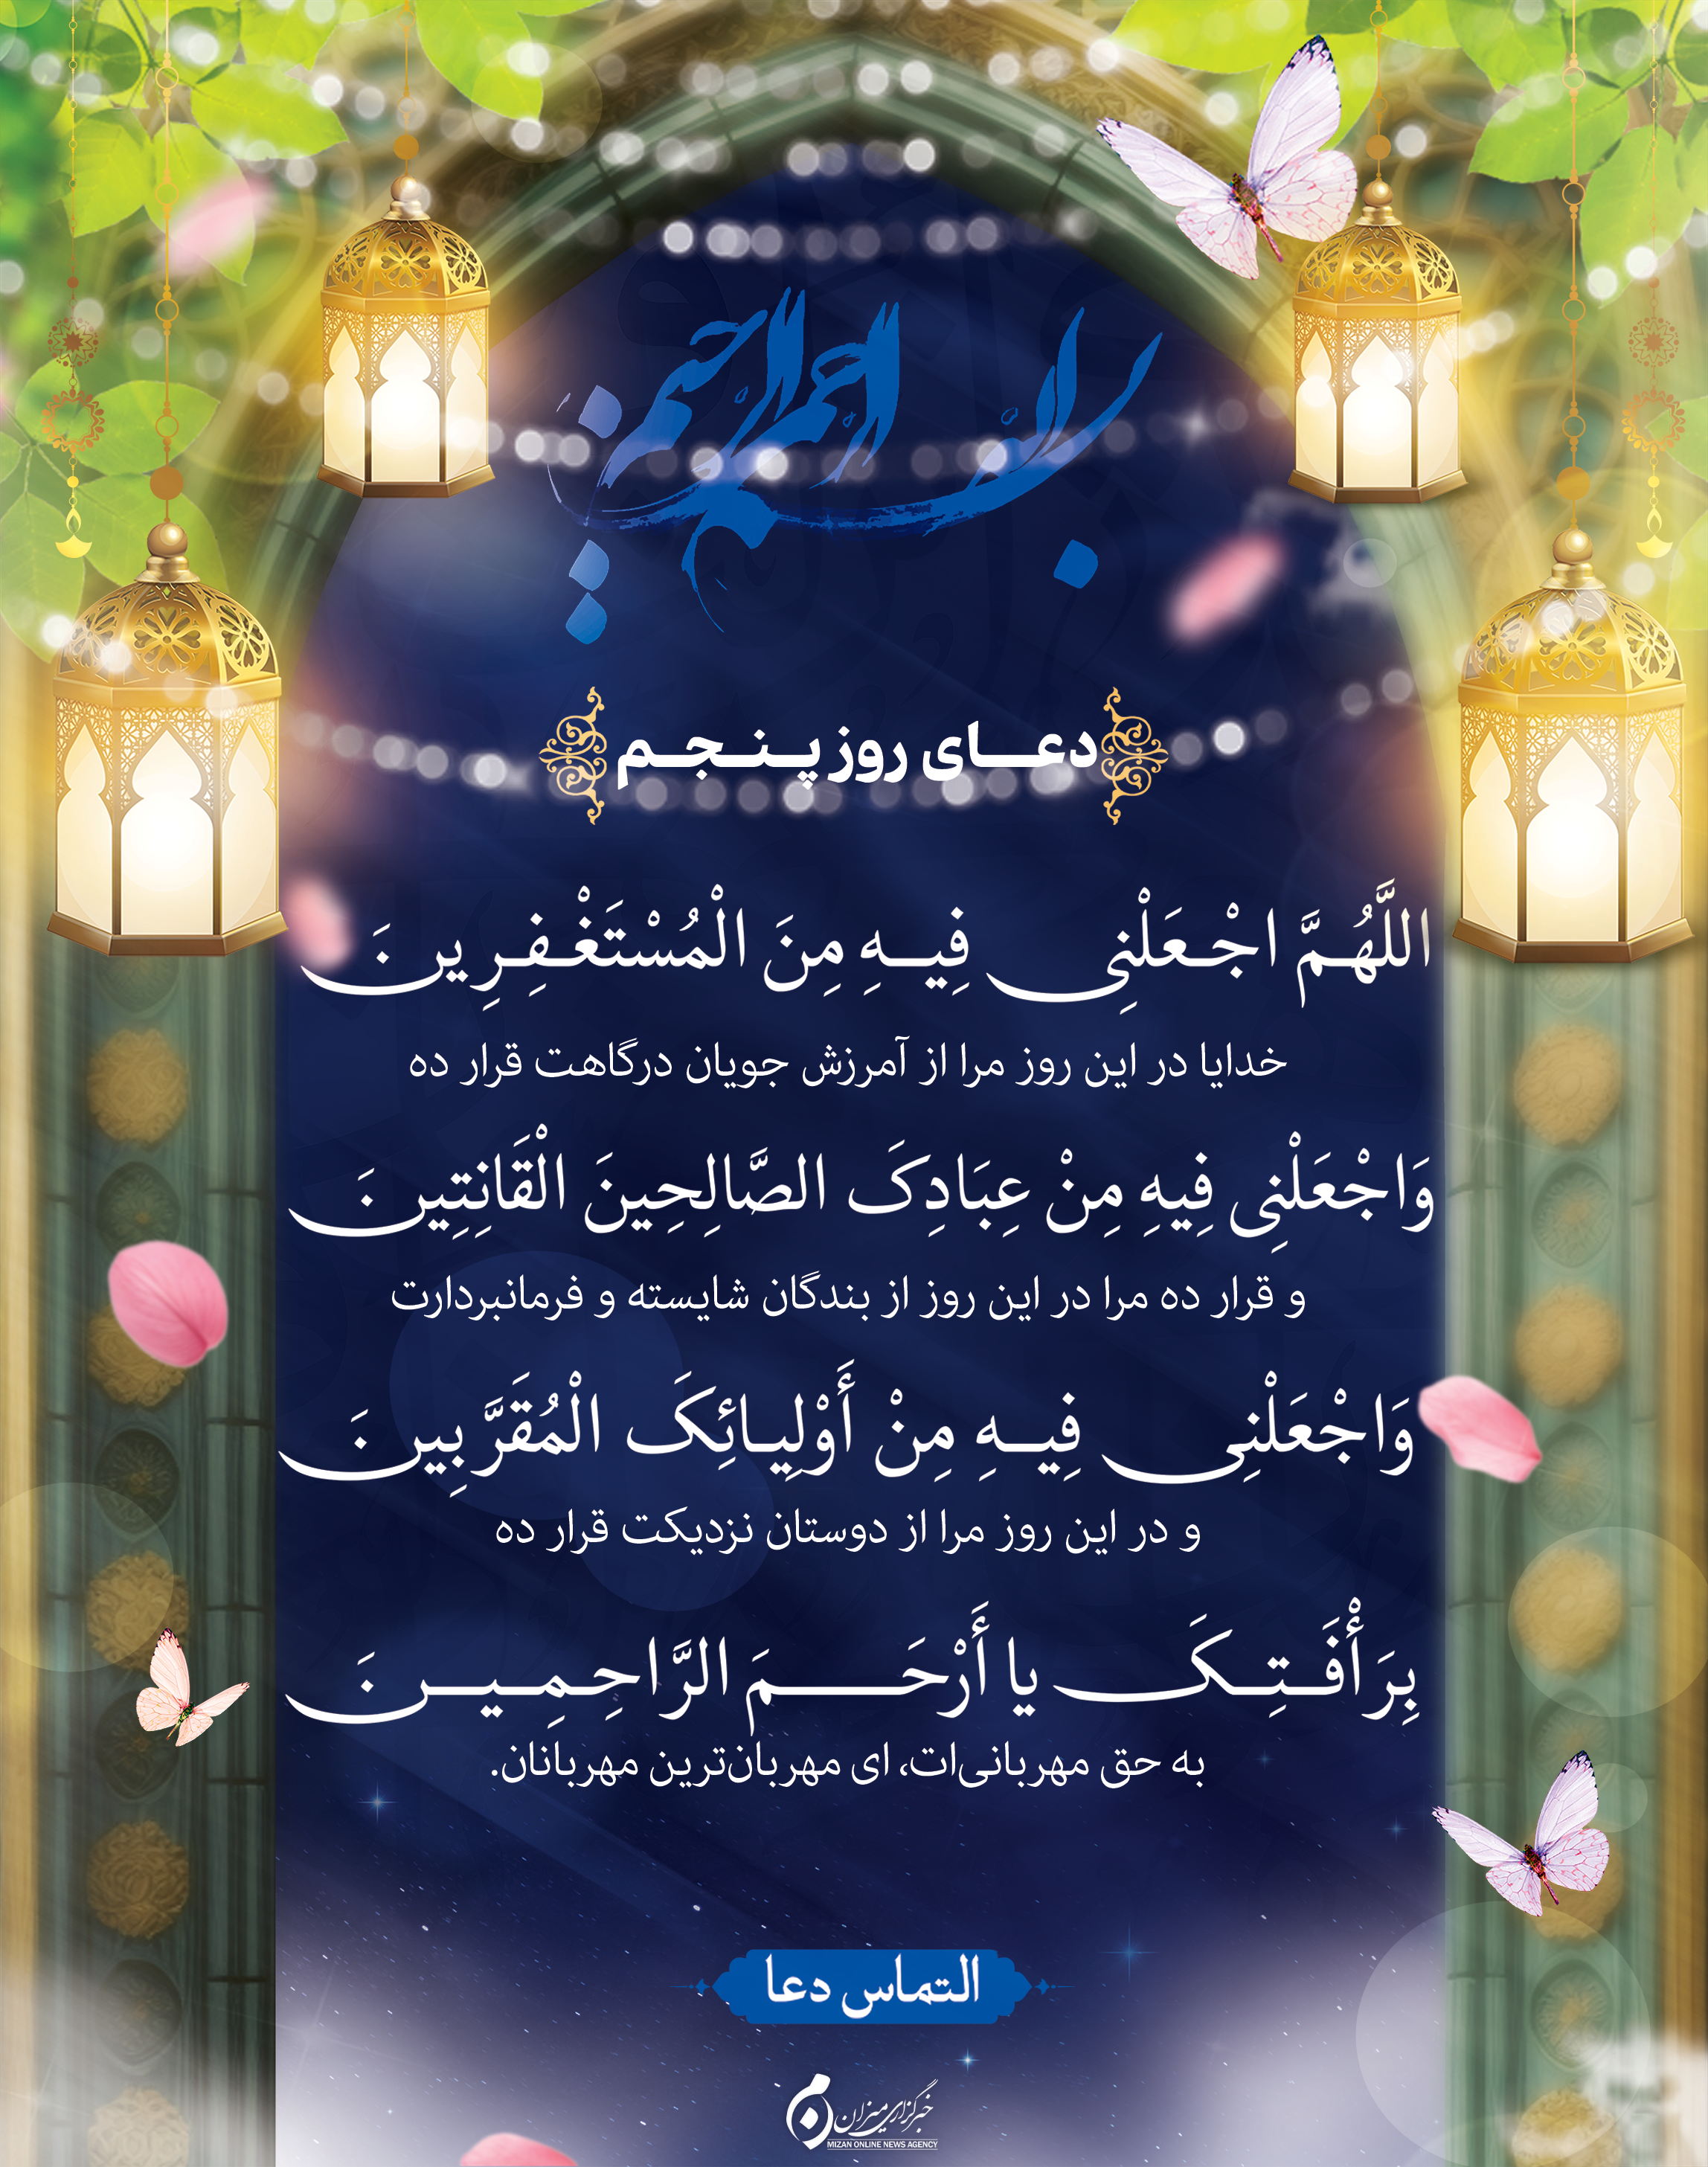 بسم الله الرحمن الرحیم
دعـــای روز پـنـجـم
اللَّهُمَّ اجْعَلْنِی فِیهِ مِنَ الْمُسْتَغْفِرِینَ
خدایا در این روز مرا از آمرزش جویان درگاهت قرار ده
وَاجْعَلْنِی فِیهِ مِنْ عِبَادِکَ الصَّالِحِینَ الْقَانِتِینَ
و قرار ده مرا در این روز از بندگان شایسته و فرمانبردارت
وَاجْعَلْنِی فِیهِ مِنْ أَوْلِیائِکَ الْمُقَرَّبِینَ
و در این روز مرا از دوستان نزدیکت قرار ده
بِرَأْفَتِکَ یا أَرْحَمَ الرَّاحِمِینَ
به حق مهربانی‌ات، ای مهربان‌ترین مهربانان.
التماس دعا
خبرگزاری میزان
MIZAN ONLINE NEWS AGENCY